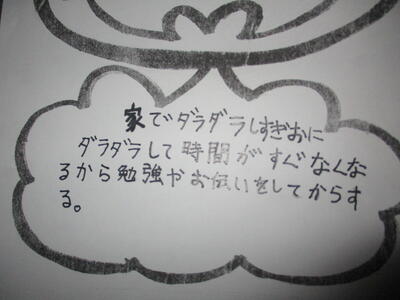 家でダラダラしすぎおに
ダラダラして時間がすぐなくな
るから勉強やお伝いをしてからす
る。